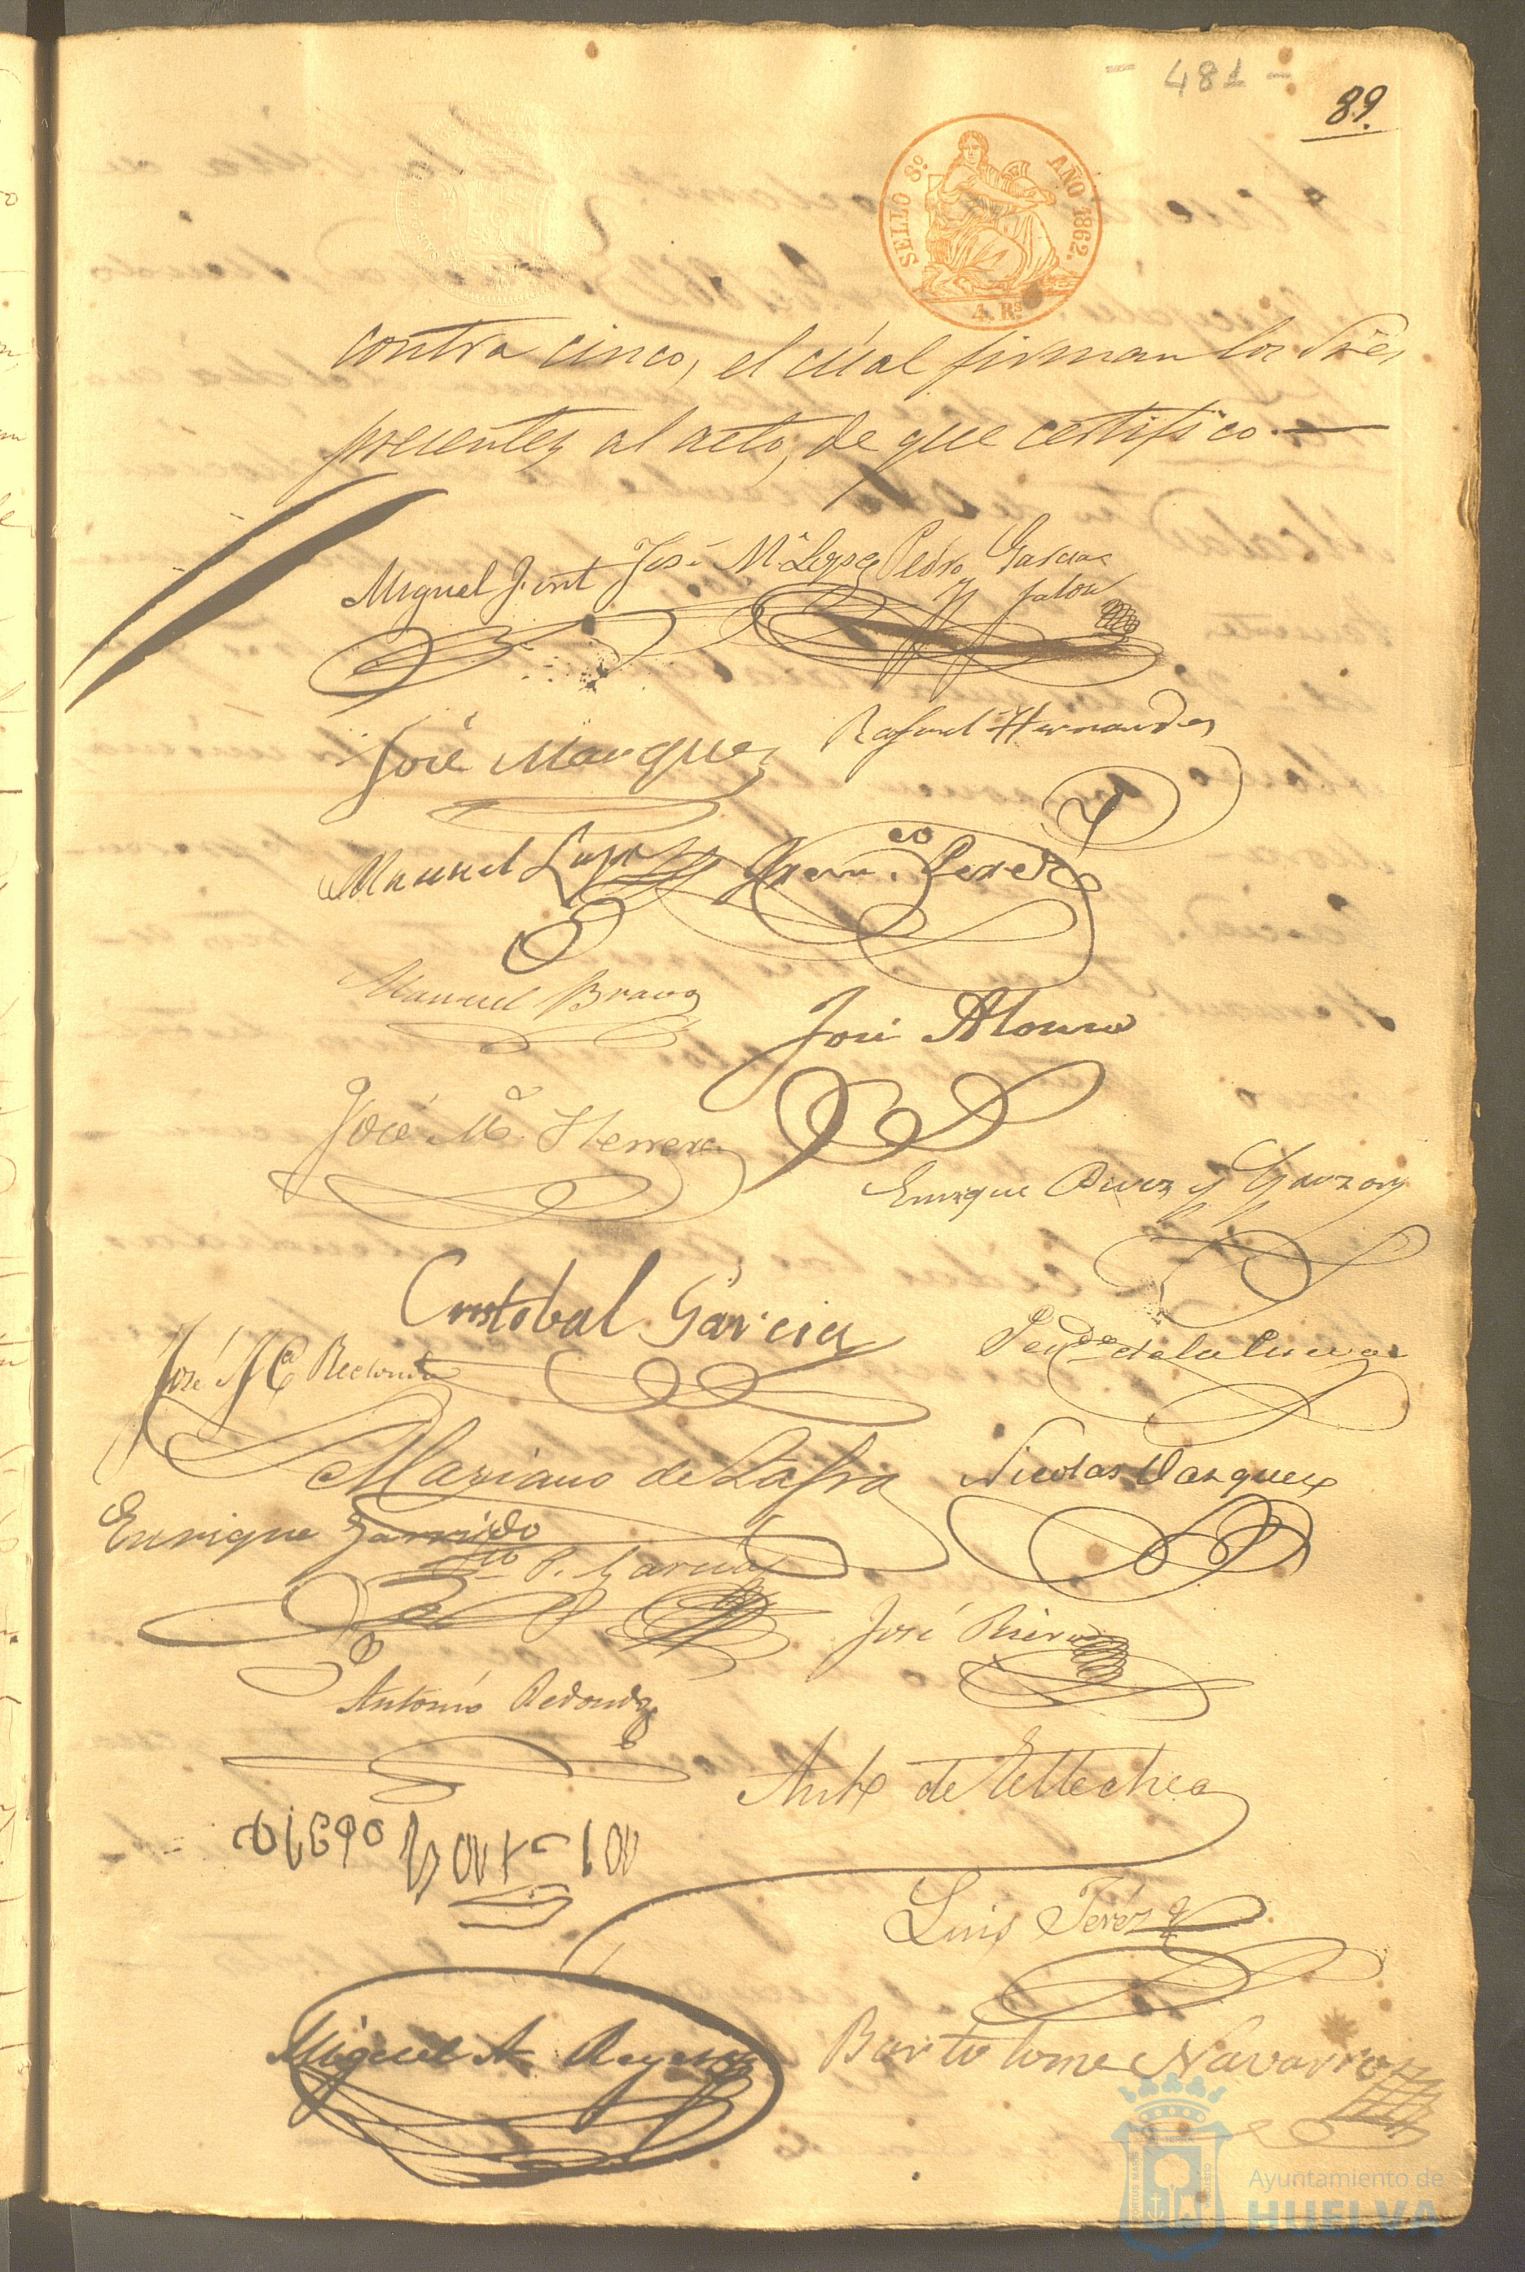 - 481 -
89.
SELLO 8º AÑO 1862.
4. Rs
contra cinco, el cúal firman los Sres
presentes al acto, de que certifico.
Miguel José Mª Lopez Pedro Garcia
y
José Marquez Rafael Hernandez
Manuel Lopez Franco Perez
Manuel Bravo
José Alonso
José Mª Herrera
Enrique Perez y Garzon
Cristobal Garcia
José Mª Redondo de la Cueva
Mariano de Lafra Nicolas Vazquez
Enrique Garrido
P. Garcia
José Rivero
Antonio Redondo
Antº de
DIEGO
Luis Pérez
Miguel Aº Reyes
Bartolome Navarro
PORTUS MARIS
CUSTODIA
Ayuntamiento de
HUELVA